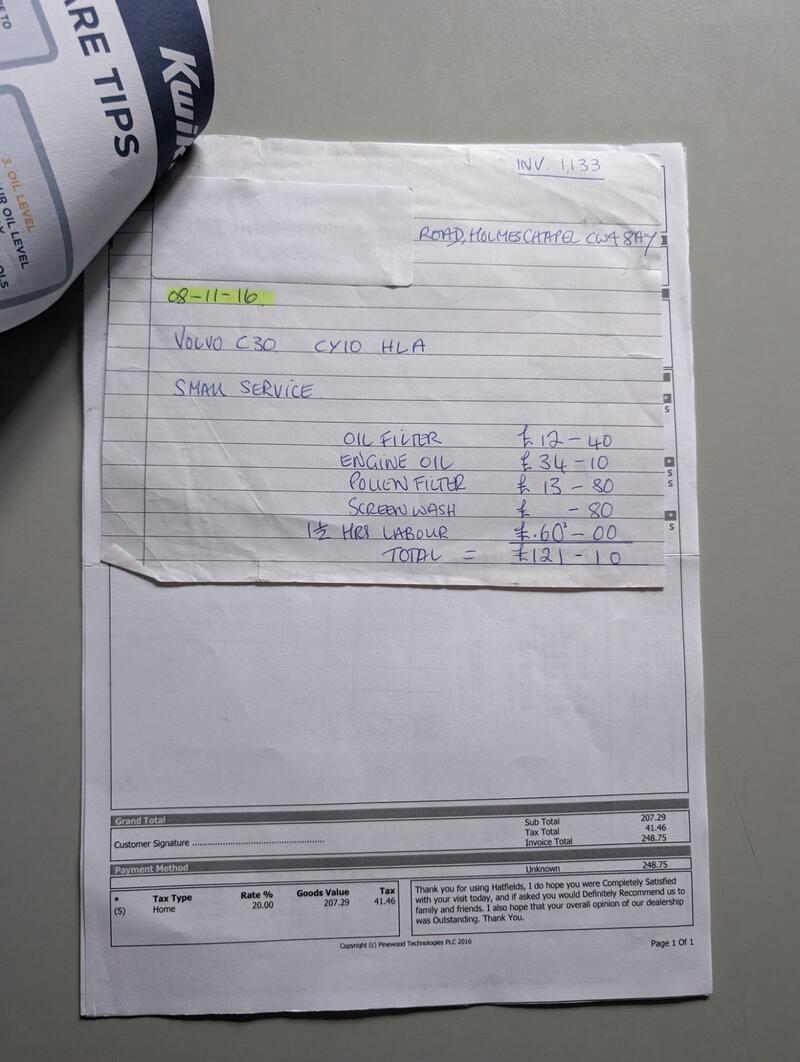 ARE TIPS
Kwik
3. OIL LEVEL
UR OIL LEVEL
INV. 1133
ROAD, HOLMES CHAPEL CW4 8AY
08-11-16
VOLVO C30 CY10 HLA
SMALL SERVICE
OIL FILTER £12-40
ENGINE OIL £34-10
POLLEN FILTER £ 13-80
SCREEN WASH £ -80
1½ HRS LABOUR £.60-00
TOTAL = £121-10
S
S
S
S
Grand Total
Sub Total 207.29
Tax Total 41.46
Customer Signature ......................................................
Invoice Total 248.75
Payment Method
Unknown 248.75
* Tax Type Rate % Goods Value Tax
(S) Home 20.00 207.29 41.46
Thank you for using Hatfields, I do hope you were Completely Satisfied
with your visit today, and if asked you would Definitely Recommend us to
family and friends. I also hope that your overall opinion of our dealership
was Outstanding. Thank You.
Copyright (c) Pinewood Technologies PLC 2016
Page 1 Of 1